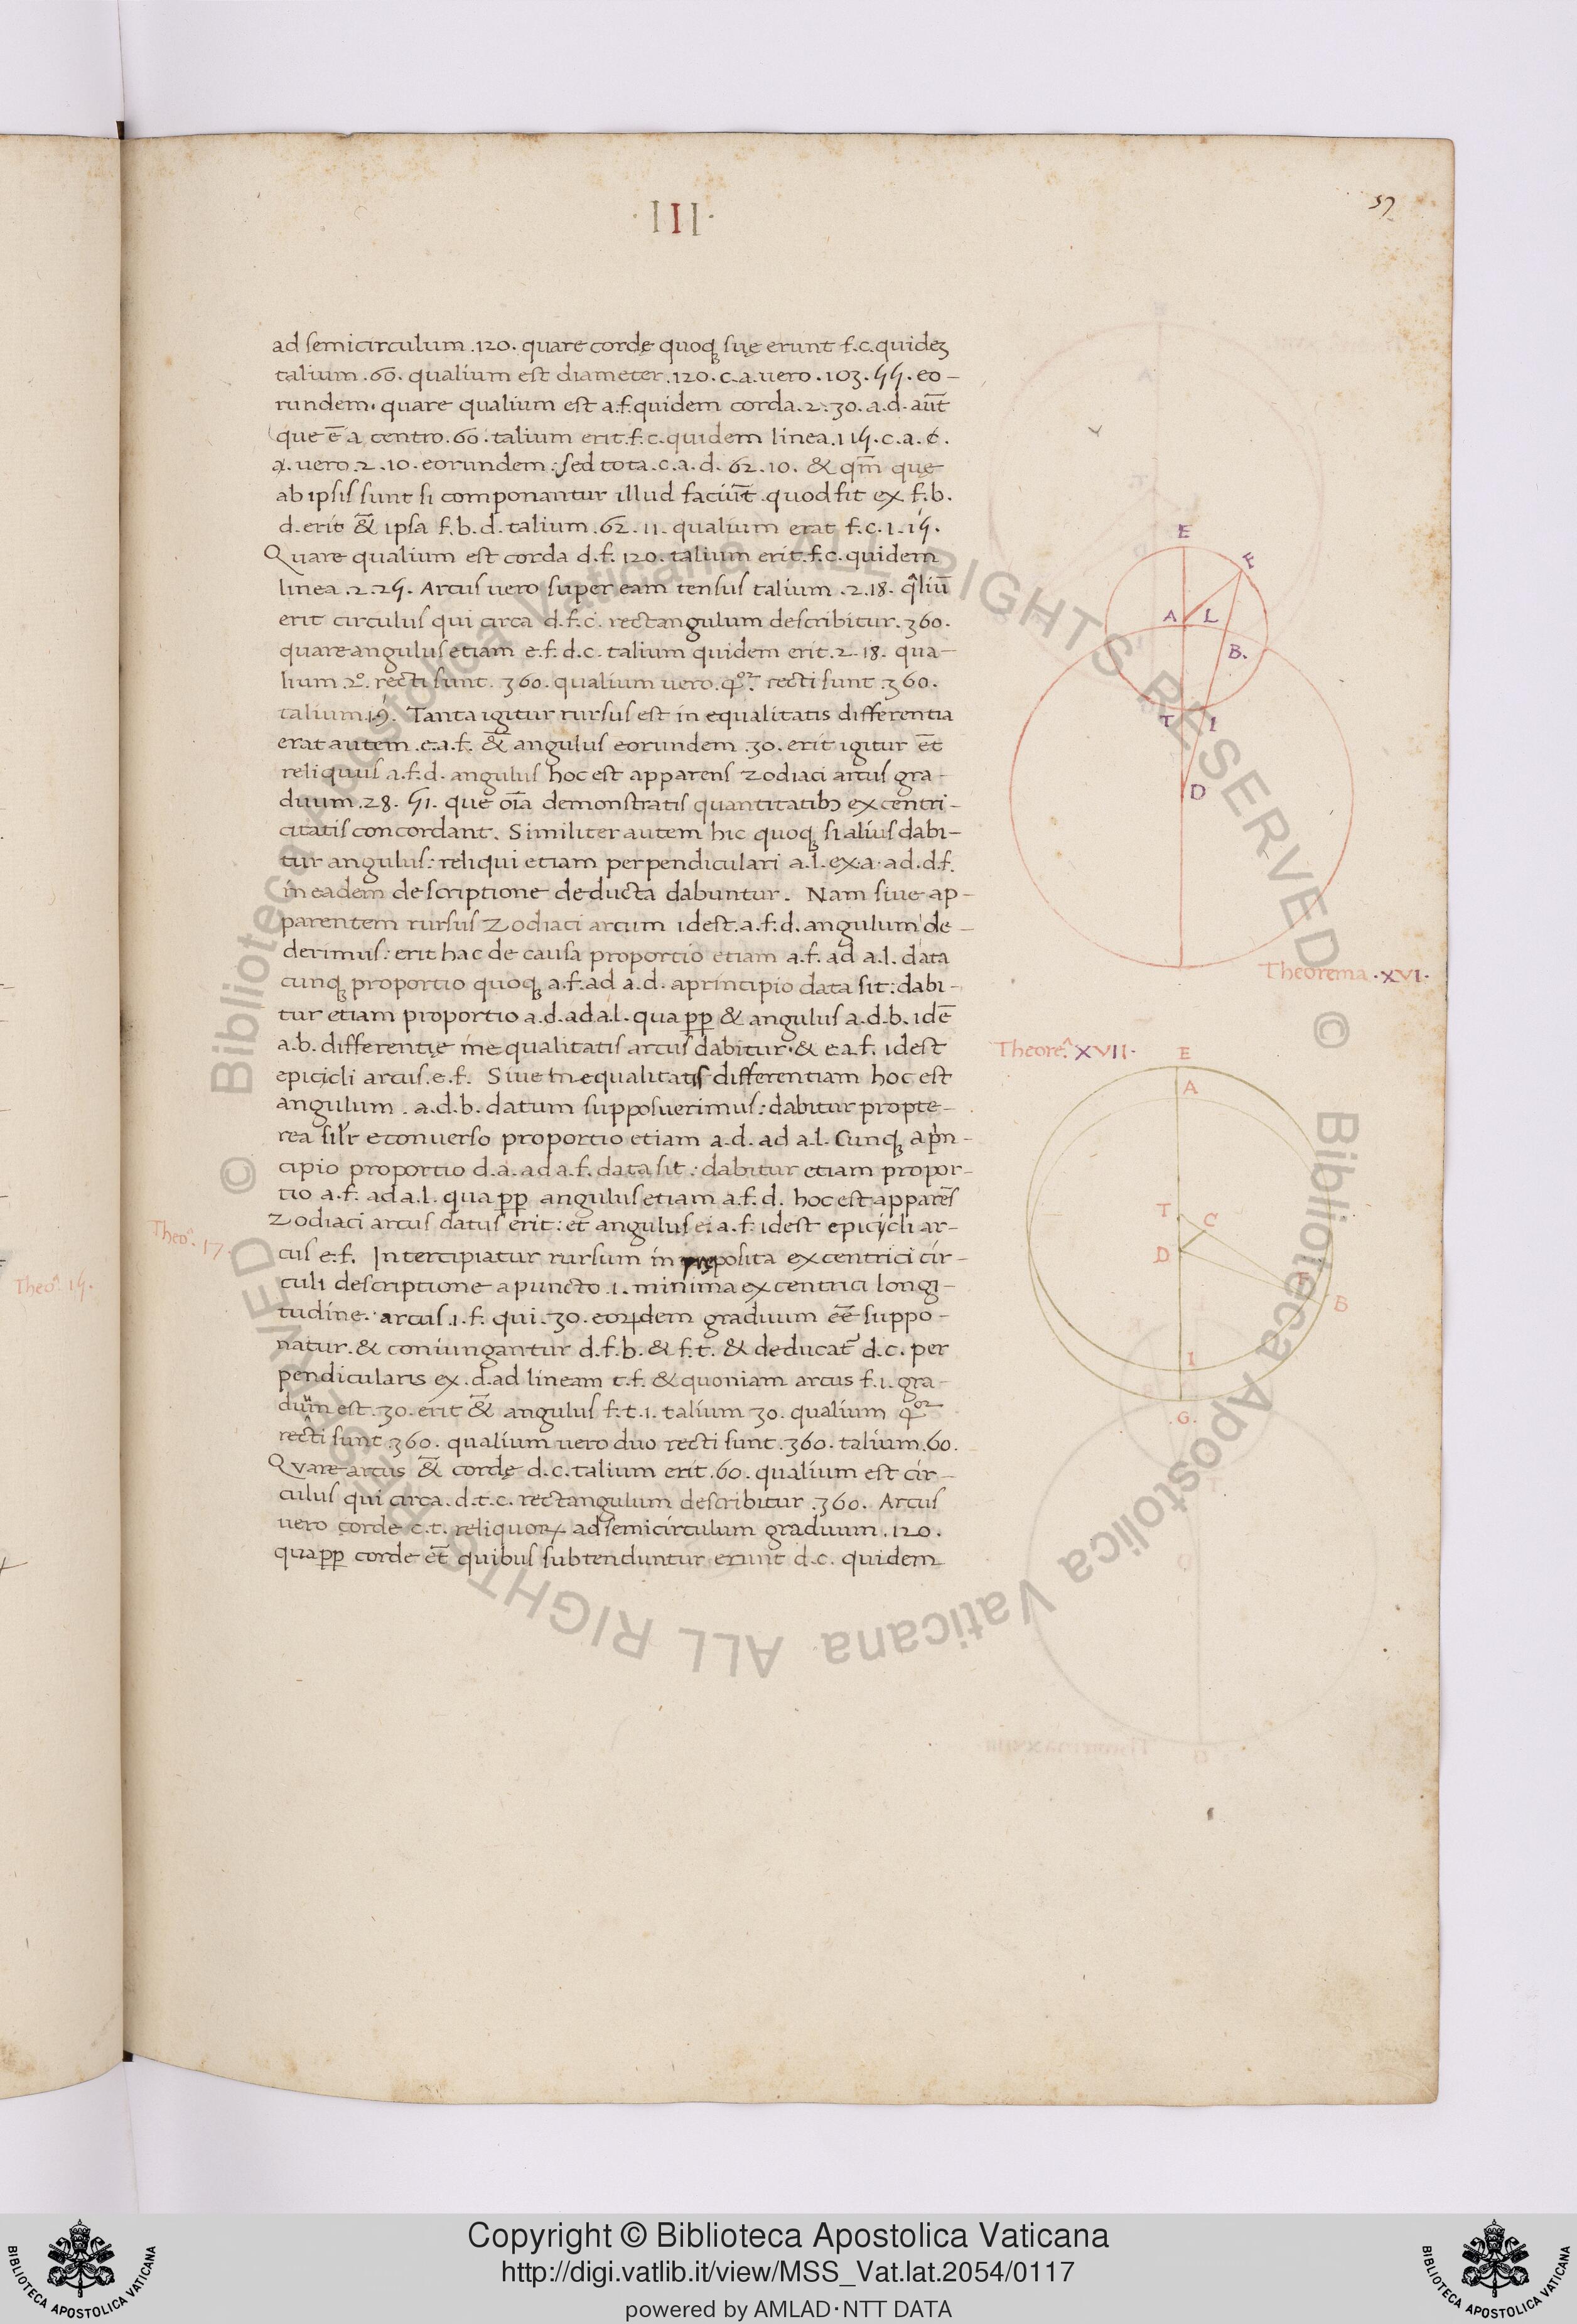 ·III·
57
ad semicirculum .120. quare cordę quoqꝫ suę erunt f.c. quideꝫ
talium .60. qualium est diameter .120. c.a. uero .103.55. eo-
rundem. quare qualium est a.f. quidem corda .2.30. a.d. aut̄
que ē a centro .60. talium erit .f.c. quidem linea .1 15. c.a.
uero .2.10. eorundem: sed tota .c.a.d. 62.10. & qm̄ quę
ab ipsis sunt si componantur illud faciūt quod fit ex f.b.
d. erit &̄ ipsa f.b.d. talium .62.11. qualium erat f.c.1.15.
Quare qualium est corda d.f. 120. talium erit .f.c. quidem
linea .2.25. Arcus uero super eam tensus talium .2.18. q̄liū
erit circulus qui circa d.f.c. rectangulum describitur .360.
quare angulus etiam e.f.d.c. talium quidem erit .2.18. qua-
lium .2º. recti sunt .360. qualium uero .4or. recti sunt .360.
talium .1.9. Tanta igitur rursus est in equalitatis differentia
erat autem .e.a.f. &̄ angulus eorundem .30. erit igitur et̄
reliquus a.f.d. angulus hoc est apparens zodiaci arcus gra-
duum .28.51. que oīa demonstratis quantitatibꝰ excentri-
citatis concordant. Similiter autem hic quoqꝫ si alius dabi-
tur angulus: reliqui etiam perpendiculari a.l. ex .a. ad .d.f.
in eadem descriptione deducta dabuntur. Nam siue ap-
parentem rursus zodiaci arcum idest .a.f.d. angulum de-
derimus: erit hac de causa proportio etiam a.f. ad a.l. data
cunqꝫ proportio quoqꝫ a.f. ad a.d. aprincipio data sit: dabi-
tur etiam proportio a.d. ad a.l. qua ꝓp & angulus a.d.b. idē
a.b. differentię inequalitatis arcus dabitur. & e.a.f. idest
epicicli arcus .e.f. Siue in equalitatis differentiam hoc est
angulum .a.d.b. datum supposuerimus: dabitur propte-
rea silr̄ econuerso proportio etiam a.d. ad a.l. Cunqꝫ aprin-
cipio proportio d.a. ad a.f. data sit: dabitur etiam propor-
tio a.f. ad a.l. qua ꝓp angulus etiam a.f.d. hoc est apparēs
zodiaci arcus datus erit: et angulus e.a.f. idest epicycli ar-
Theoª. 17.
cus e.f. Intercipiatur rursum in preposita excentrici cir-
Theoª. 15.
culi descriptione a puncto .i. minima excentrici longi-
tudine. arcus .i.f. qui .30. eoꝝdem graduum eē suppo-
natur. & coniungantur d.f.b. & f.t. & deducat̄ d.c. per
pendicularis ex .d. ad lineam t.f. & quoniam arcus f.i. gra-
duūm est .30. erit &̄ angulus f.t.i. talium 30. qualium 4or
recti sunt .360. qualium uero duo recti sunt .360. talium .60.
Quare arcus &̄ cordę d.c. talium erit .60. qualium est cir-
culus qui circa .d.t.c. rectangulum describitur .360. Arcus
uero corde c.t. reliquoꝝ ad semicirculum graduum .120.
qua ꝓp corde et̄ quibus subtenduntur erunt d.c. quidem
E
F
A L
B.
T I
D
Theorema .XVI.
Theoreª. XVII.
E
A
T C
D
F
B
I
.G.
© Biblioteca Apostolica Vaticana ALL RIGHTS RESERVED
© Biblioteca Apostolica Vaticana ALL RIGHTS RESERVED
BIBLIOTECA APOSTOLICA VATICANA
Copyright © Biblioteca Apostolica Vaticana
http://digi.vatlib.it/view/MSS_Vat.lat.2054/0117
powered by AMLAD·NTT DATA
BIBLIOTECA APOSTOLICA VATICANA